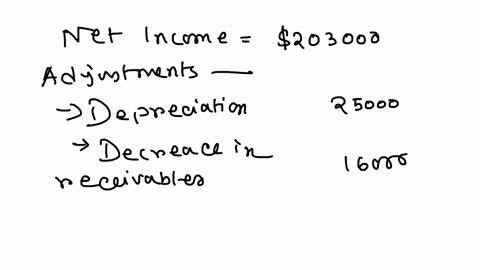 Net Income = $203000
Adjustments —
→ Depreciation 25000
→ Decreace in
receivables 16000